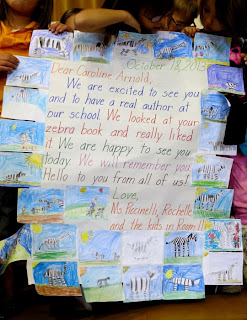 October 18, 2012
Dear Caroline Arnold,
We are excited to see you
and to have a real author at
our school. We looked at your
zebra book and really liked
it. We are happy to see you
today. We will remember you.
Hello to you from all of us!
Love,
Ms. Piccinelli, Rochelle
and the kids in Room 11